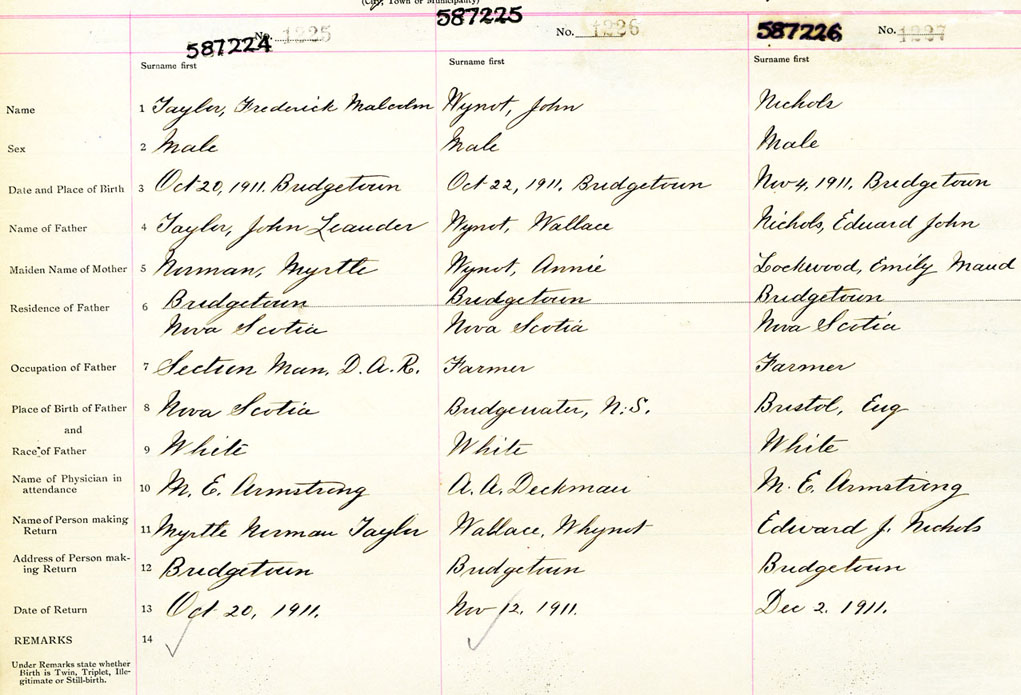 (City, Town or Municipality)
587224 No. 1225 587225 No. 1226 587226 No. 1227
Surname first Surname first Surname first
Name 1 Taylor, Frederick Malcolm Wynot, John Nichols
Sex 2 Male Male Male
Date and Place of Birth 3 Oct 20, 1911. Bridgetown Oct 22, 1911. Bridgetown Nov 4, 1911. Bridgetown
Name of Father 4 Taylor, John Leander Wynot, Wallace Nichols, Edward John
Maiden Name of Mother 5 Norman, Myrtle Wynot, Annie Lockwood, Emily Maud
Residence of Father 6 Bridgetown Bridgetown Bridgetown
Nova Scotia Nova Scotia Nova Scotia
Occupation of Father 7 Section Man, D.A.R. Farmer Farmer
Place of Birth of Father 8 Nova Scotia Bridgewater, N.S. Bristol, Eng
and
Race of Father 9 White White White
Name of Physician in
attendance 10 M. E. Armstrong A. A. Deckman M. E. Armstrong
Name of Person making
Return 11 Myrtle Norman Taylor Wallace, Whynot Edward J. Nichols
Address of Person mak-
ing Return 12 Bridgetown Bridgetown Bridgetown
Date of Return 13 Oct 20, 1911. Nov 12, 1911. Dec 2. 1911.
REMARKS 14
Under Remarks state whether
Birth is Twin, Triplet, Ille-
gitimate or Still-birth.